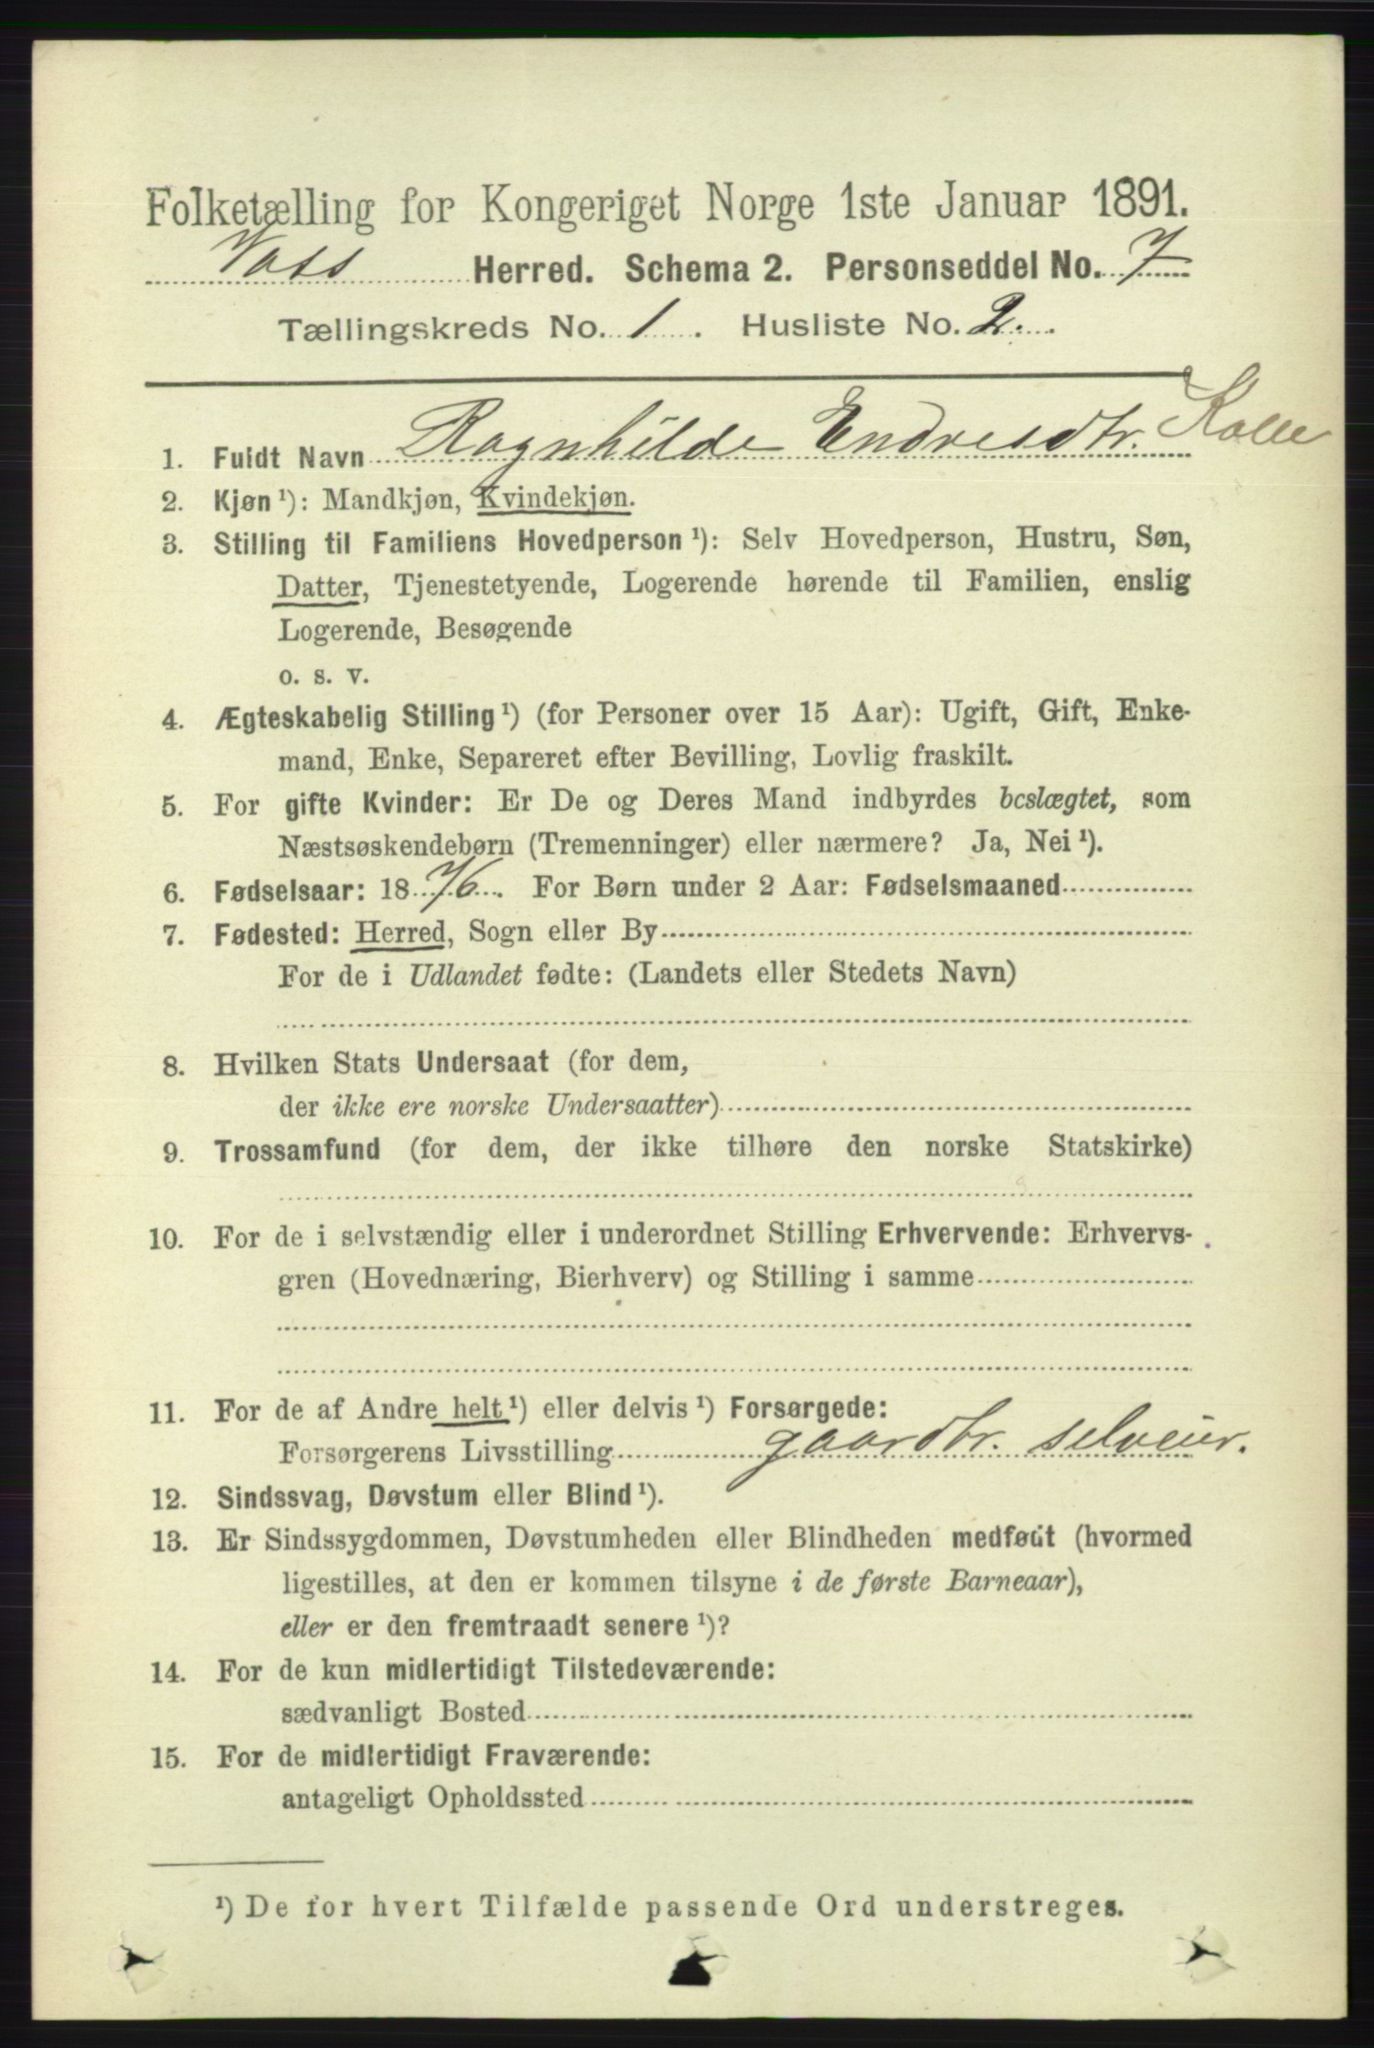 Folketælling for Kongeriget Norge 1ste Januar 1891.
Voss Herred. Schema 2. Personseddel No. 7
Tællingskreds No. 1. Husliste No. 2.
1. Fuldt Navn Ragnhilde Endresdtr. Kolle
2. Kjøn ¹): Mandkjøn, Kvindekjøn.
3. Stilling til Familiens Hovedperson ¹): Selv Hovedperson, Hustru, Søn,
Datter, Tjenestetyende, Logerende hørende til Familien, enslig
Logerende, Besøgende
o. s. v.
4. Ægteskabelig Stilling ¹) (for Personer over 15 Aar): Ugift, Gift, Enke-
mand, Enke, Separeret efter Bevilling, Lovlig fraskilt.
5. For gifte Kvinder: Er De og Deres Mand indbyrdes beslægtet, som
Næstsøskendebørn (Tremenninger) eller nærmere? Ja, Nei ¹).
6. Fødselsaar: 1876. For Børn under 2 Aar: Fødselsmaaned
7. Fødested: Herred, Sogn eller By
For de i Udlandet fødte: (Landets eller Stedets Navn)
8. Hvilken Stats Undersaat (for dem,
der ikke ere norske Undersaatter)
9. Trossamfund (for dem, der ikke tilhøre den norske Statskirke)
10. For de i selvstændig eller i underordnet Stilling Erhvervende: Erhvervs-
gren (Hovednæring, Bierhverv) og Stilling i samme
11. For de af Andre helt ¹) eller delvis ¹) Forsørgede:
Forsørgerens Livsstilling gaardbr. selveier.
12. Sindssvag, Døvstum eller Blind ¹).
13. Er Sindssygdommen, Døvstumheden eller Blindheden medfødt (hvormed
ligestilles, at den er kommen tilsyne i de første Barneaar),
eller er den fremtraadt senere ¹)?
14. For de kun midlertidigt Tilstedeværende:
sædvanligt Bosted
15. For de midlertidigt Fraværende:
antageligt Opholdssted
¹) De for hvert Tilfælde passende Ord understreges.